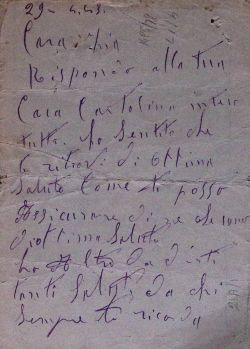 29- 4.43.
Cara zia
Rispondo alla tua
Cara Cartolina intera
tutto. ho Sentito che
ti ritrovi di ottima
Salute Come ti posso
Assicurare di me che sono
d'ottima Salute
ho Altro da dirti
tanti Saluti da chi
Sempre te ricorda